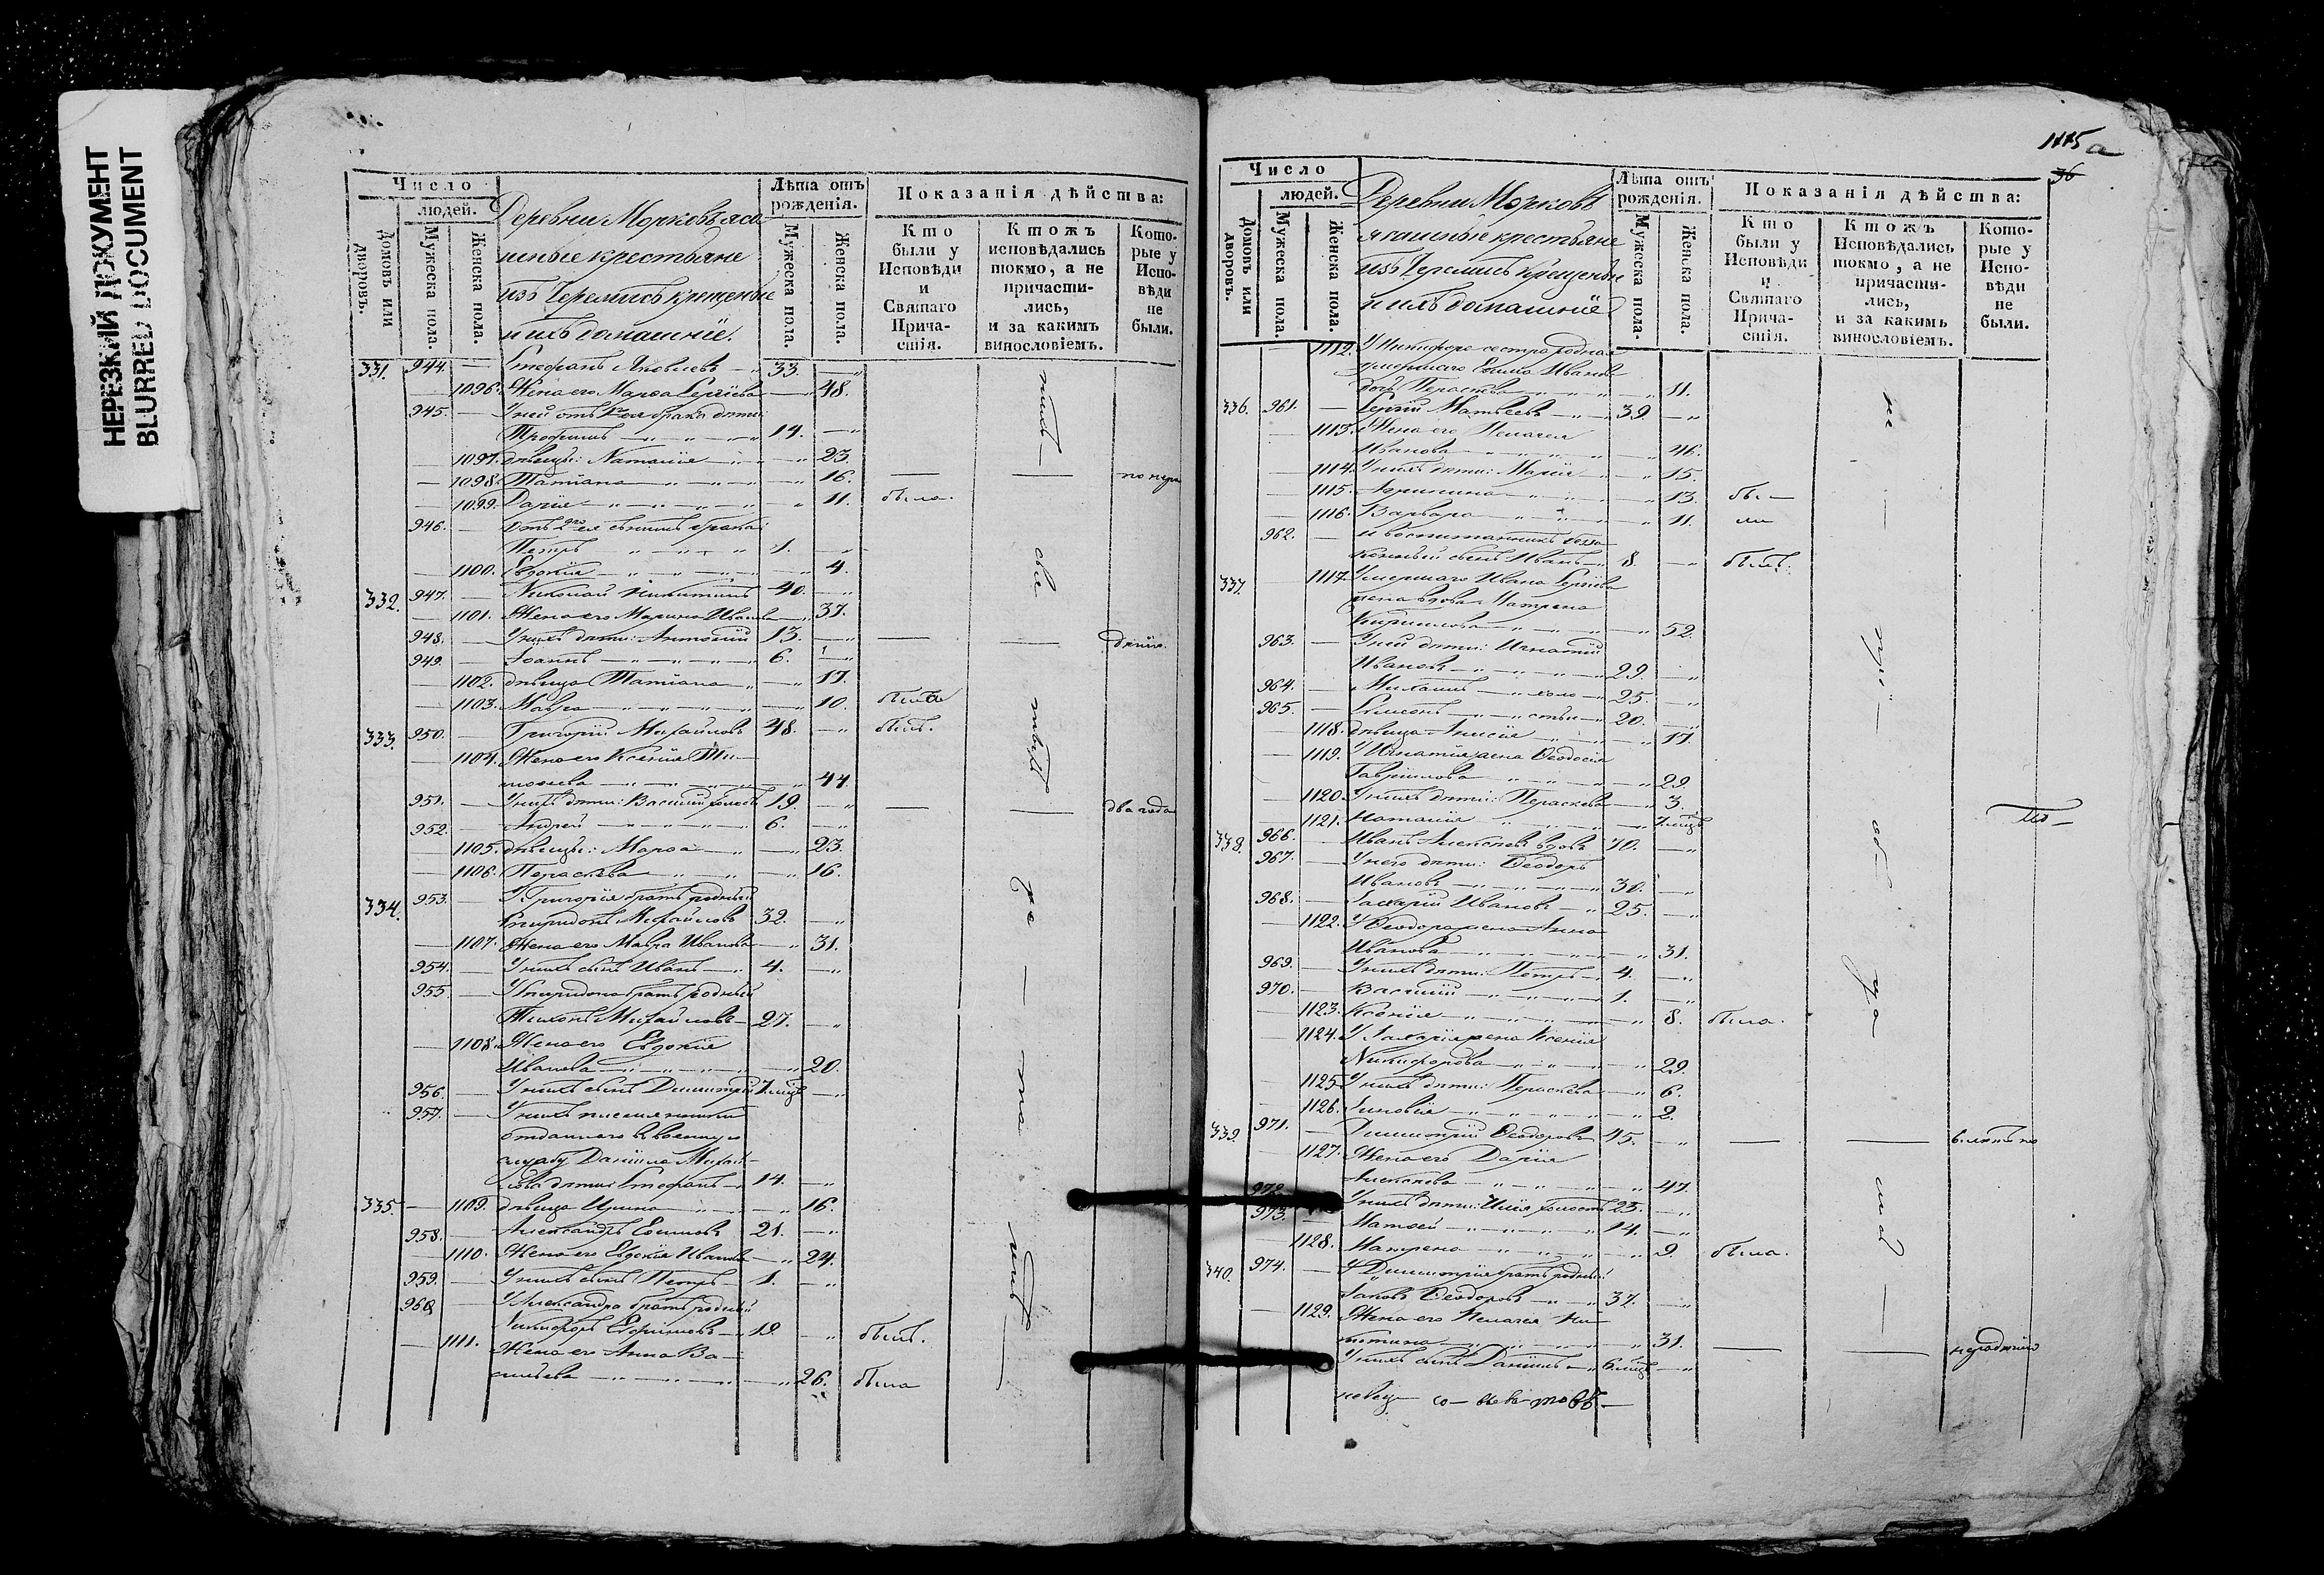 НЕРЕЗКИЙ ДОКУМЕНТ
BLURRED DOCUMENT
Число
людей.
Домовъ или дворовъ.
Мужеска пола.
Женска пола.
Деревни Морковъ яса
шные крестьяне
изъ Черемисъ крещеные
и ихъ домашніе.
Лѣта отъ рожденія.
Мужеска пола.
Женска пола.
Показанія дѣйства:
Кто были у Исповѣди и Святаго Причастія.
Ктожъ исповѣдались токмо, а не причастились, и за какимъ винословіемъ.
Которые у Исповѣди не были.
331. 944. — Стефанъ Яковлевъ — 33. —
— 1096. Жена его Марѳа Сергіева — 48.
945. — У ней отъ 1го брака дѣти:
Трофимъ — 14. —
— 1097. дѣвицы: Наталія — 23.
— 1098. Татіана — 16. — —
— 1099. Дарія — 11. была.
946. — отъ 2го брака:
Петръ — 1. —
— 1100. Евдокія — 4.
332. 947. — Николай Никитинъ 40. —
— 1101. Жена его Марина Иванова — 37.
948. — У нихъ дѣти: Антоній 13. — — —
949. — Іоаннъ — 6. —
— 1102. дѣвица Татіана — 17.
— 1103. Мавра — 10. была
333. 950. — Григорій Михайловъ 48. — былъ.
— 1104. Жена его Ксенія Ти-
моѳеева — 44.
951. — У нихъ дѣти: Василій холостъ 19. — — — два года
952. — Андрей — 6. —
— 1105. дѣвицы: Марѳа — 23.
— 1106. Параскева — 16.
334. 953. — У Григорія братъ родный
Спиридонъ Михайловъ 32. —
— 1107. Жена его Мавра Иванова — 31.
954. — У нихъ сынъ Иванъ — 4. —
955. — У Спиридона братъ родный
Тихонъ Михайловъ — 27. —
— 1108. Жена его Евдокія
Иванова — 20.
956. — У нихъ сынъ Димитрій 7.мцъ —
957. — У нихъ племянники
отданнаго въ военную
службу Даніила Михай-
лова дѣти: Стефанъ — 14. —
335. — 1109. дѣвица Ирина — 16.
958. — Александръ Ефимовъ 21. —
— 1110. Жена его Евдокія Иванова — 24.
959. — У нихъ сынъ Петръ 1. —
960. — У Александра братъ родный
Никифоръ Ефимовъ — 19. — былъ.
— 1111. Жена его Анна Ва-
сильева — 26. была
1115 а
36
Число
людей.
Домовъ или дворовъ.
Мужеска пола.
Женска пола.
Деревни Морковъ
ясашные крестьяне
изъ Черемисъ крещеные
и ихъ домашніе
Лѣта отъ рожденія.
Мужеска пола.
Женска пола.
Показанія дѣйства:
Кто были у Исповѣди и Святаго Причастія.
Ктожъ Исповѣдались токмо, а не причастились, и за какимъ винословіемъ.
Которые у Исповѣди не были.
— 1112. У Никифора сестра родная
умершаго Ефима Иванова
дочь Параскева — 11.
336. 961. — Сергій Матвеевъ — 39. —
— 1113. Жена его Пелагея
Иванова — 46.
— 1114. У нихъ дѣти: Марія — 15.
— 1115. Агрипина — 13. бы —
— 1116. Варвара — 11. ли
962. — и воспитанникъ
сынъ Иванъ — 8. — былъ.
337. — 1117. Умершаго Ивана Сергѣева
жена вдова Матрена
Кириллова — 52.
963. — У ней дѣти: Игнатій
Ивановъ — 29. —
964. — Михаилъ — холо — 25. —
965. — Симеонъ — сты — 20. —
— 1118. дѣвица Анисія — 17.
— 1119. У Игнатія жена Ѳеодосія
Гавріилова — 29.
— 1120. У нихъ дѣти: Параскева — 3.
— 1121. Наталія — мцъ
338. 966. — Иванъ Алексѣевъ вдовъ 70. —
967. — У него дѣти: Ѳеодоръ
Ивановъ — 30. —
968. — Захарій Ивановъ — 25. —
— 1122. У Ѳеодора жена Анна
Иванова — 31.
969. — У нихъ дѣти: Петръ — 4. —
970. — Василій — 1. —
— 1123. Ксенія — 8. была.
— 1124. У Захарія жена Ксенія
Никифорова — 29.
— 1125. У нихъ дѣти: Параскева — 6.
— 1126. Зиновія — 2.
339. 971. — Димитрій Ѳеодоровъ 45. — — —
— 1127. Жена его Дарія
Алексѣева — 47.
972. — У нихъ дѣти: Илія холостъ 23. —
973. — Матѳей — 14. —
— 1128. Матрена — 9. была.
340. 974. — У Димитрія братъ родный
Іаковъ Ѳеодоровъ — 37. —
— 1129. Жена его Пелагея Ни-
китина — 31. — —
У нихъ сынъ Даніилъ — 6.мцъ —